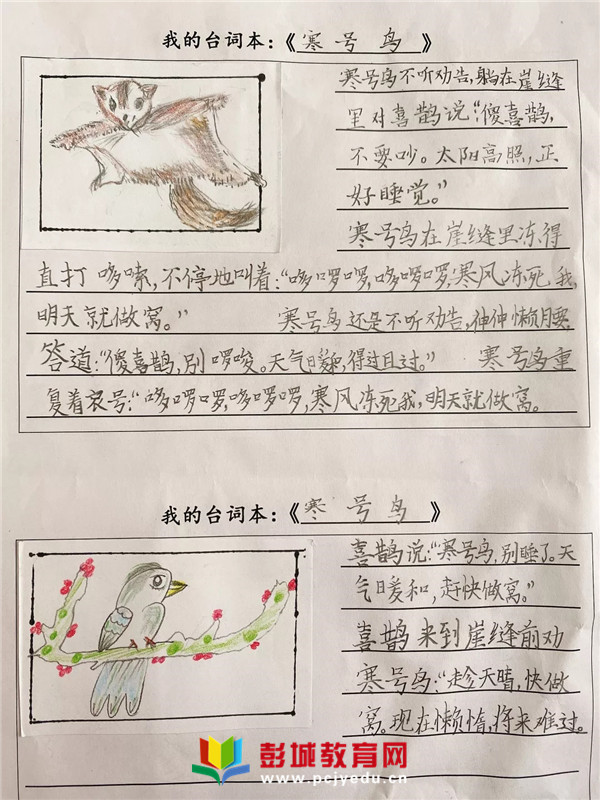 我的台词本：《寒号鸟》
寒号鸟不听劝告，躺在崖缝
里对喜鹊说：“傻喜鹊，
不要吵。太阳高照，正
好睡觉。”
寒号鸟在崖缝里冻得
直打哆嗦，不停地叫着：“哆啰啰，哆啰啰，寒风冻死我，
明天就做窝。” 寒号鸟还是不听劝告，伸伸懒腰
答道：“傻喜鹊，别啰唆。天气暖和，得过且过。” 寒号鸟重
复着哀号：“哆啰啰，哆啰啰，寒风冻死我，明天就做窝。
我的台词本：《寒号鸟》
喜鹊说：“寒号鸟，别睡了。天
气暖和，赶快做窝。”
喜鹊来到崖缝前劝
寒号鸟：“趁天晴，快做
窝。现在懒惰，将来难过。
彭城教育网
www.pcjyedu.cn